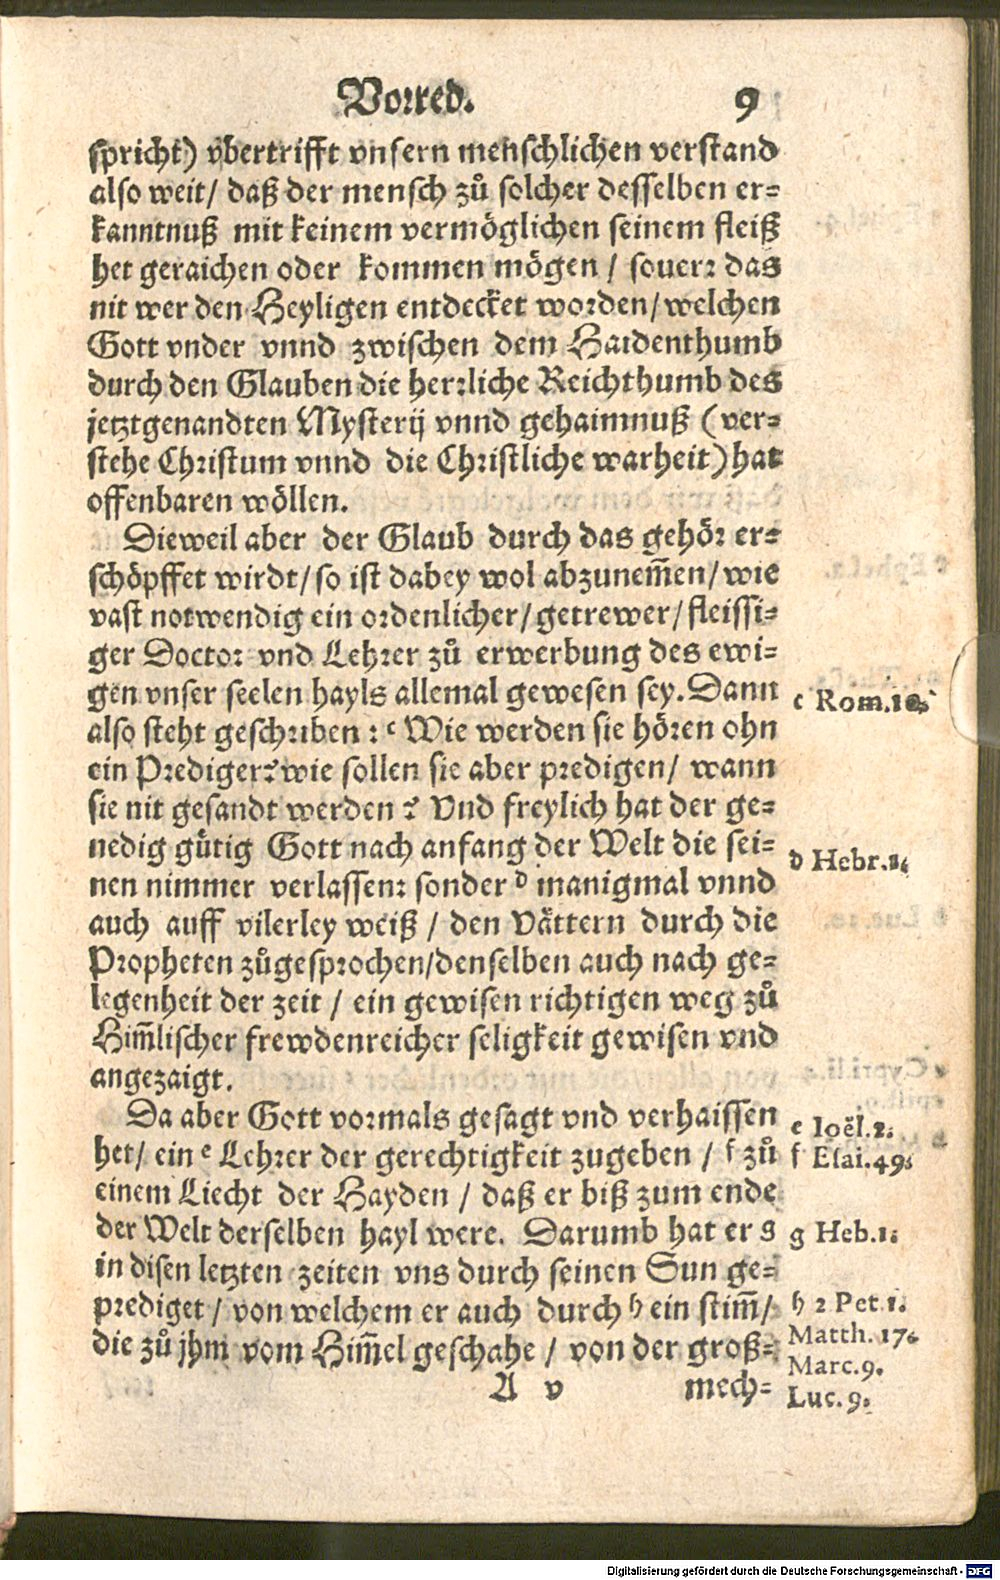 Vorred. 9
spricht) vbertrifft vnsern menschlichen verstand
also weit/ daß der mensch zů solcher desselben er=
kanntnuß mit keinem vermöglichen seinem fleiß
het geraichen oder kommen mögen / souerr das
nit wer den Heyligen entdecket worden/welchen
Gott vnder vnnd zwischen dem Haidenthumb
durch den Glauben die herrliche Reichthumb des
jetztgenandten Mysterij vnnd gehaimnuß (ver=
stehe Christum vnnd die Christliche warheit) hat
offenbaren wöllen.
Dieweil aber der Glaub durch das gehör er=
schöpffet wirdt/so ist dabey wol abzunem̃en/wie
vast notwendig ein ordenlicher/getrewer/fleissi=
ger Doctor vnd Lehrer zů erwerbung des ewi=
gen vnser seelen hayls allemal gewesen sey. Dann
c Rom.10.
also steht geschriben : c Wie werden sie hören ohn
ein Prediger? wie sollen sie aber predigen/ wann
sie nit gesandt werden ? Vnd freylich hat der ge=
nedig gůtig Gott nach anfang der Welt die sei=
d Hebr.1.
nen nimmer verlassen: sonder d manigmal vnnd
auch auff vilerley weiß / den Vättern durch die
Propheten zůgesprochen/denselben auch nach ge=
legenheit der zeit / ein gewisen richtigen weg zů
Him̃lischer frewdenreicher seligkeit gewisen vnd
angezaigt.
Da aber Gott vormals gesagt vnd verhaissen
e Ioël.2.
het/ ein e Lehrer der gerechtigkeit zugeben / f zů
f Esai.49.
einem Liecht der Hayden / daß er biß zum ende
der Welt derselben hayl were. Darumb hat er g
g Heb.1.
in disen letzten zeiten vns durch seinen Sun ge=
prediget / von welchem er auch durch h ein stim̃/
h 2 Pet.1.
Matth. 17.
die zů jhm vom Him̃el geschahe / von der groß=
Marc.9.
A v mech=
Luc. 9.
Digitalisierung gefördert durch die Deutsche Forschungsgemeinschaft - DFG